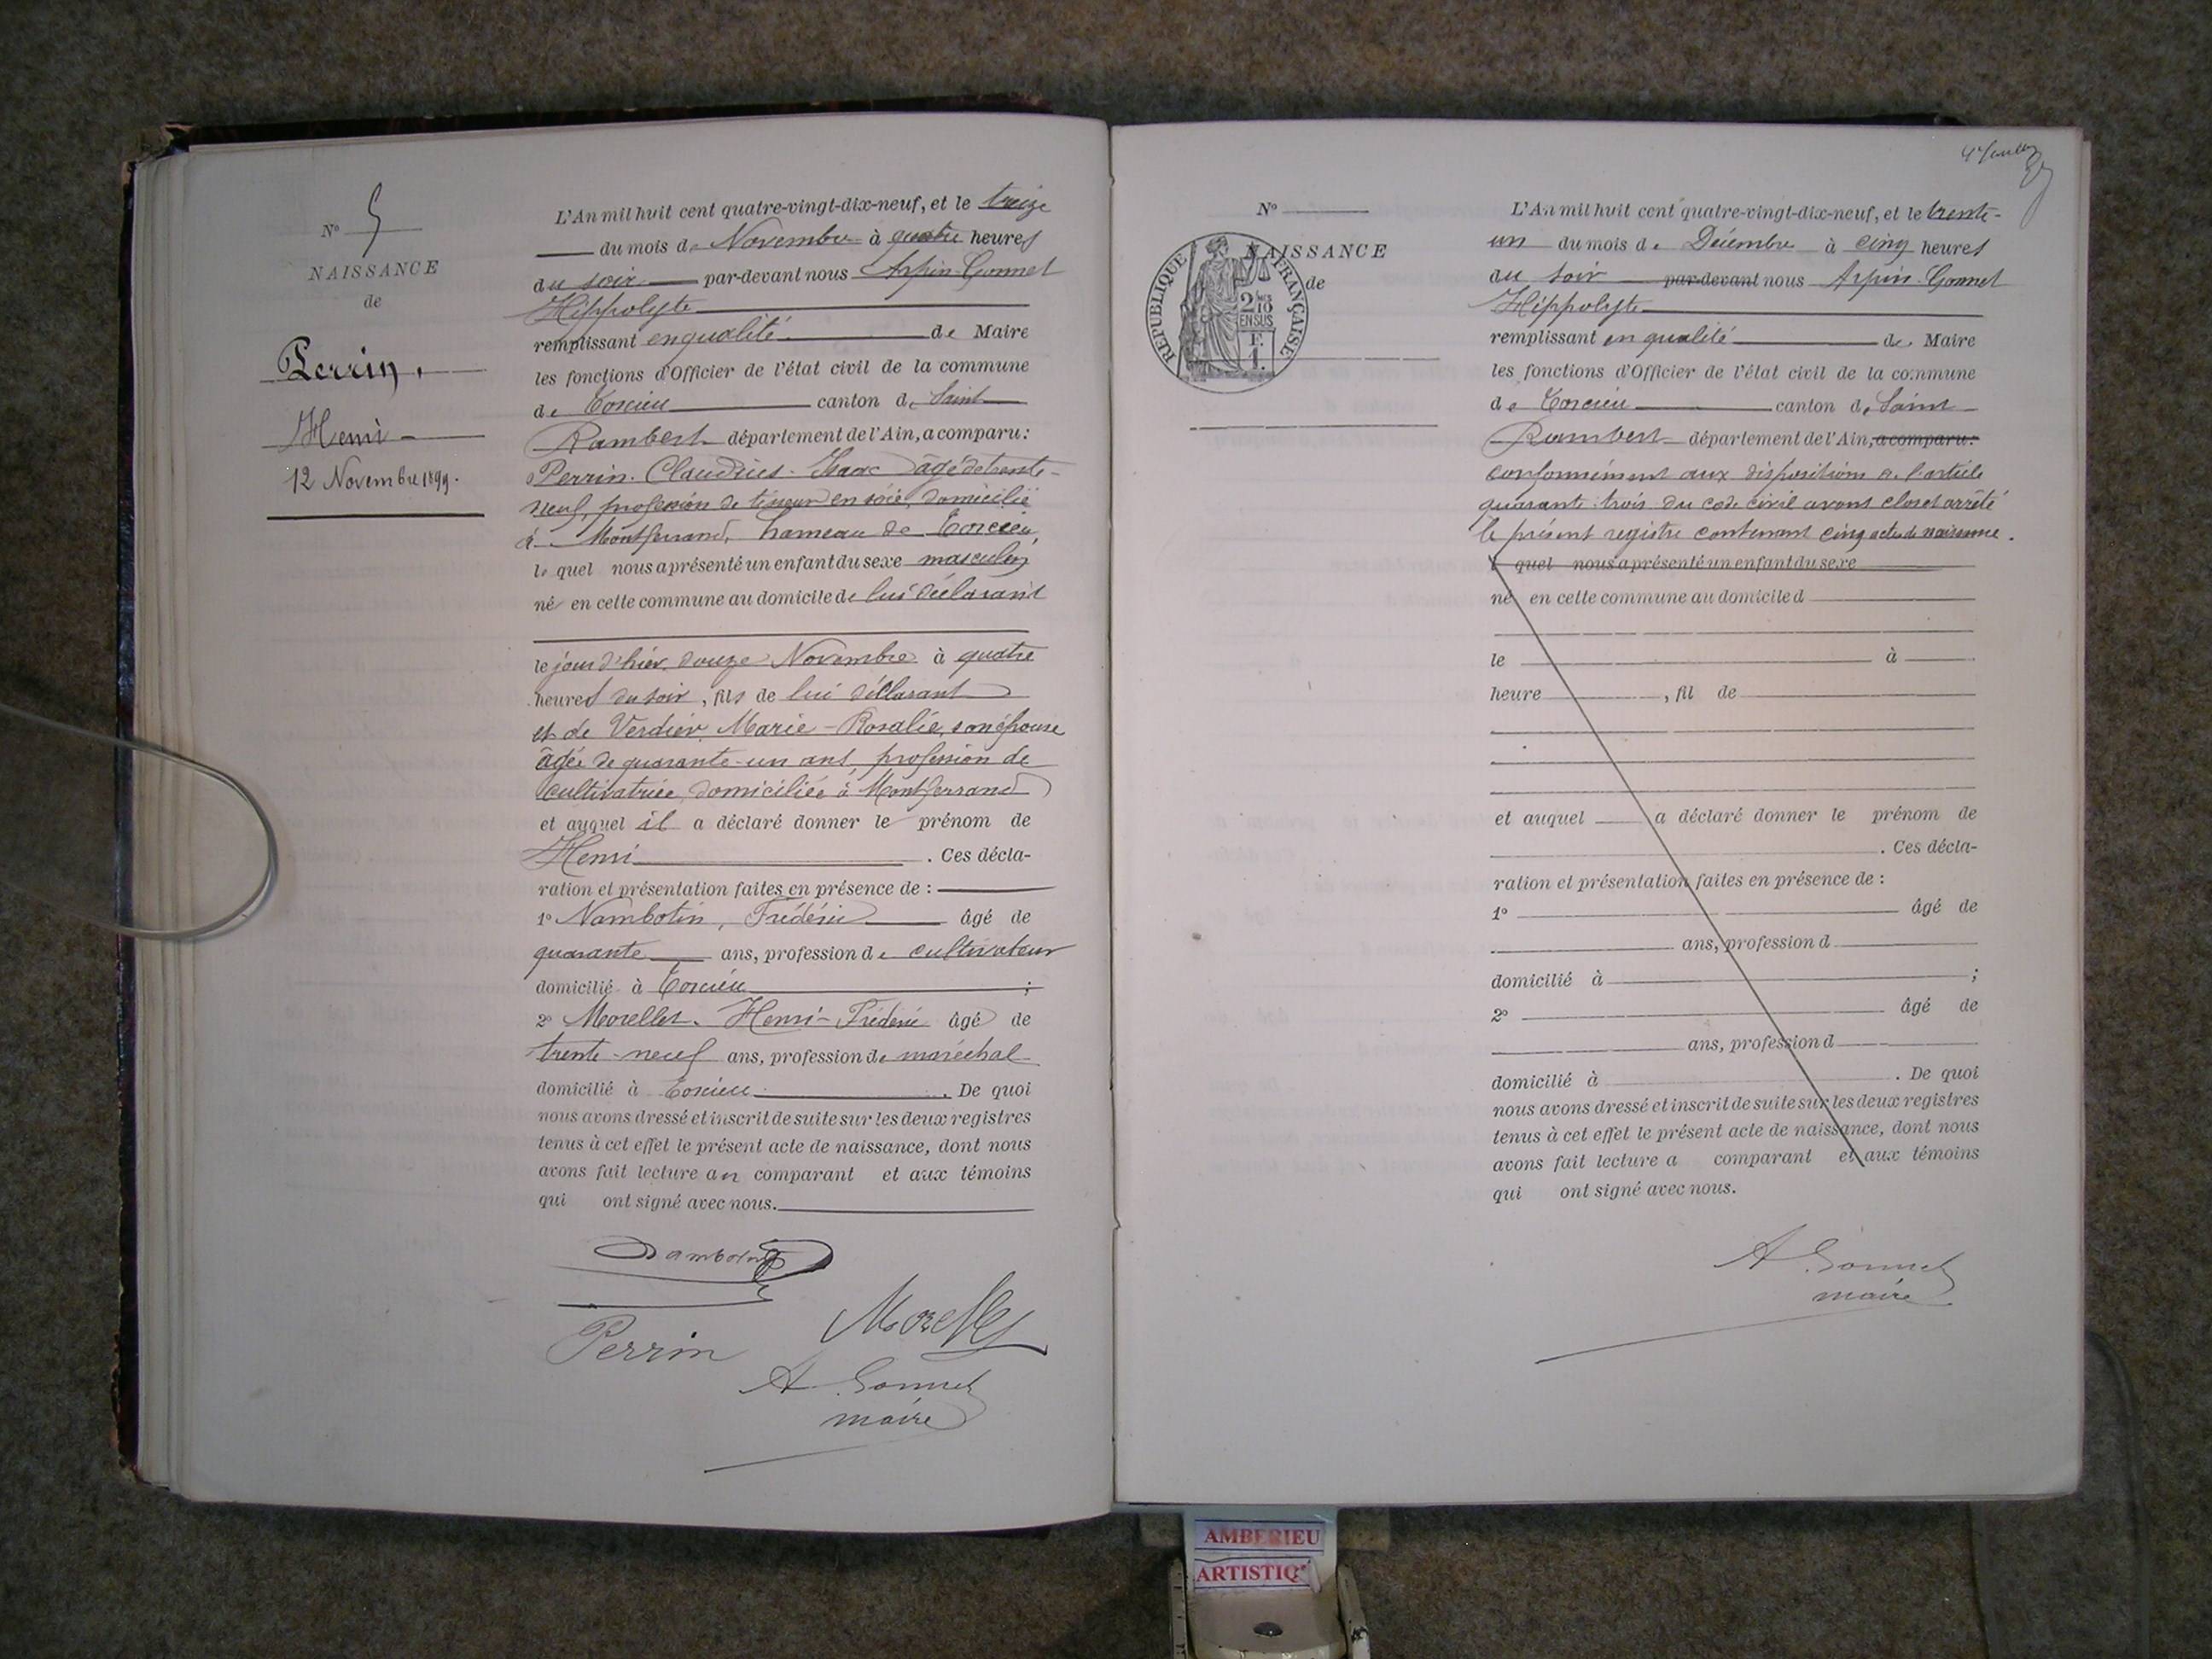 N° 5
NAISSANCE
de
Perrin,
Henri
12 Novembre 1899.
L'An mil huit cent quatre-vingt-dix-neuf, et le treize
du mois de Novembre à quatre heures
du soir par-devant nous Arpin-Gonnet
Hippolyte
remplissant en qualité de Maire
les fonctions d'Officier de l'état civil de la commune
de Torcieu canton de Saint
Rambert département de l'Ain, a comparu:
Perrin. Claudius-Isaac âgé de trente-
neuf, profession de tisseur en soie, domicilié
à Montferrand, hameau de Torcieu,
lequel nous a présenté un enfant du sexe masculin
né en cette commune au domicile de lui déclarant
le jour d'hier douze Novembre à quatre
heures du soir, fils de lui déclarant
et de Verdier Marie-Rosalie, son épouse
âgée de quarante-un ans, profession de
cultivatrice, domiciliée à Montferrand
et auquel il a déclaré donner le prénom de
Henri. Ces décla-
ration et présentation faites en présence de :
1° Nambotin, Frédéric âgé de
quarante ans, profession de cultivateur
domicilié à Torcieu ;
2° Morellet. Henri-Frédéric âgé de
trente-neuf ans, profession de maréchal
domicilié à Torcieu. De quoi
nous avons dressé et inscrit de suite sur les deux registres
tenus à cet effet le présent acte de naissance, dont nous
avons fait lecture au comparant et aux témoins
qui ont signé avec nous.
Nambotin
Morellet
Perrin
A Gonnet
maire
N°
NAISSANCE
de
RÉPUBLIQUE FRANÇAISE
2/10
EN SUS
F.
1.
L'An mil huit cent quatre-vingt-dix-neuf, et le trente-
un du mois de Décembre à cinq heures
du soir par-devant nous Arpin-Gonnet
Hippolyte
remplissant en qualité de Maire
les fonctions d'Officier de l'état civil de la commune
de Torcieu canton de Saint
Rambert département de l'Ain, a comparu:
conformément aux dispositions de l'article
quarante-trois du code civil avons clos et arrêté
le présent registre contenant cinq actes de naissance.
l quel nous a présenté un enfant du sexe
né en cette commune au domicile d
le à
heure , fil de
et auquel a déclaré donner le prénom de
. Ces décla-
ration et présentation faites en présence de :
1° âgé de
ans, profession d
domicilié à ;
2° âgé de
ans, profession d
domicilié à . De quoi
nous avons dressé et inscrit de suite sur les deux registres
tenus à cet effet le présent acte de naissance, dont nous
avons fait lecture a comparant et aux témoins
qui ont signé avec nous.
A Gonnet
maire
AMBERIEU
ARTISTIQ